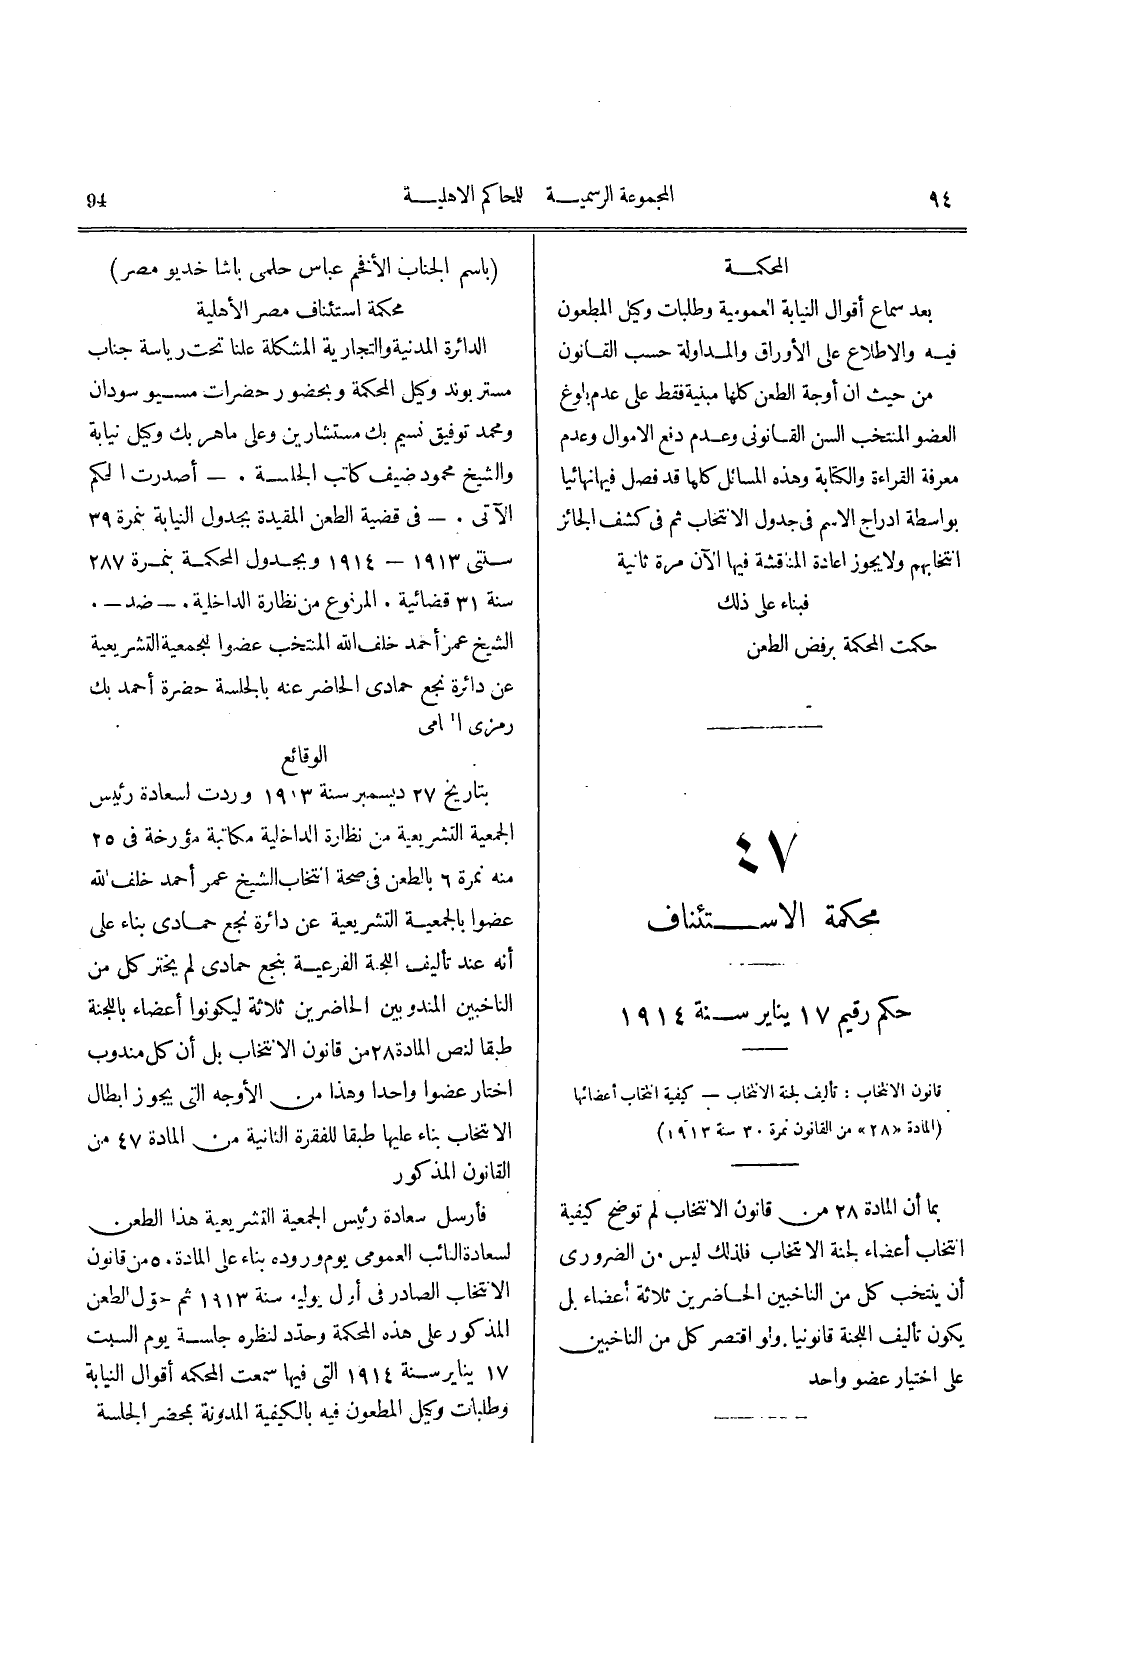 ٩٤
المجموعة الرسمية للمحاكم الاهلية
94
المحكمة
بعد سماع أقوال النيابة العمومية وطلبات وكيل المطعون
فيه والاطلاع على الأوراق والمداولة حسب القانون
من حيث ان أوجة الطعن كلها مبنية فقط على عدم بلوغ
العضو المنتخب السن القانونى وعدم دفع الاموال وعدم
معرفة القراءة والكتابة وهذه المسائل كلها قد فصل فيها نهائيا
بواسطة ادراج الاسم فى جدول الانتخاب ثم فى كشف الجائز
انتخابهم ولا يجوز اعادة المناقشة فيها الآن مرة ثانية
فبناء على ذلك
حكمت المحكمة برفض الطعن
٤٧
محكمة الاستئناف
حكم رقيم ١٧ يناير سنة ١٩١٤
قانون الانتخاب : تأليف لجنة الانتخاب — كيفية انتخاب أعضائها
(المادة «٢٨» من القانون نمرة ٣٠ سنة ١٩١٣)
بما أن المادة ٢٨ من قانون الانتخاب لم توضح كيفية
انتخاب أعضاء لجنة الانتخاب فلذلك ليس من الضرورى
أن ينتخب كل من الناخبين الحاضرين ثلاثة أعضاء بل
يكون تأليف اللجنة قانونيا ولو اقتصر كل من الناخبين
على اختيار عضو واحد
(باسم الجناب الأفخم عباس حلمى باشا خديو مصر)
محكمة استئناف مصر الأهلية
الدائرة المدنية والتجارية المشكلة علنا تحت رياسة جناب
مستر بوند وكيل المحكمة وبحضور حضرات مسيو سودان
ومحمد توفيق نسيم بك مستشارين وعلى ماهر بك وكيل نيابة
والشيخ محمود ضيف كاتب الجلسة . — أصدرت الحكم
الآتى . — فى قضية الطعن المقيدة بجدول النيابة بنمرة ٣٩
سنتى ١٩١٣ — ١٩١٤ وبجدول المحكمة بنمرة ٢٨٧
سنة ٣١ قضائية . المرفوع من نظارة الداخلية . — ضد — .
الشيخ عمر أحمد خلف الله المنتخب عضوا للجمعية التشريعية
عن دائرة نجع حمادى الحاضر عنه بالجلسة حضرة أحمد بك
رمزى المحامى
الوقائع
بتاريخ ٢٧ ديسمبر سنة ١٩١٣ وردت لسعادة رئيس
الجمعية التشريعية من نظارة الداخلية مكاتبة مؤرخة فى ٢٥
منه نمرة ٦ بالطعن فى صحة انتخاب الشيخ عمر أحمد خلف الله
عضوا بالجمعية التشريعية عن دائرة نجع حمادى بناء على
أنه عند تأليف اللجنة الفرعية بنجع حمادى لم يختر كل من
الناخبين المندوبين الحاضرين ثلاثة ليكونوا أعضاء باللجنة
طبقا لنص المادة ٢٨ من قانون الانتخاب بل أن كل مندوب
اختار عضوا واحدا وهذا من الأوجه التى يجوز ابطال
الانتخاب بناء عليها طبقا للفقرة الثانية من المادة ٤٧ من
القانون المذكور
فأرسل سعادة رئيس الجمعية التشريعية هذا الطعن
لسعادة النائب العمومى يوم وروده بناء على المادة ٥٠ من قانون
الانتخاب الصادر فى أول يوليه سنة ١٩١٣ ثم حوّل الطعن
المذكور على هذه المحكمة وحدّد لنظره جلسة يوم السبت
١٧ يناير سنة ١٩١٤ التى فيها سمعت المحكمه أقوال النيابة
وطلبات وكيل المطعون فيه بالكيفية المدونة بمحضر الجلسة